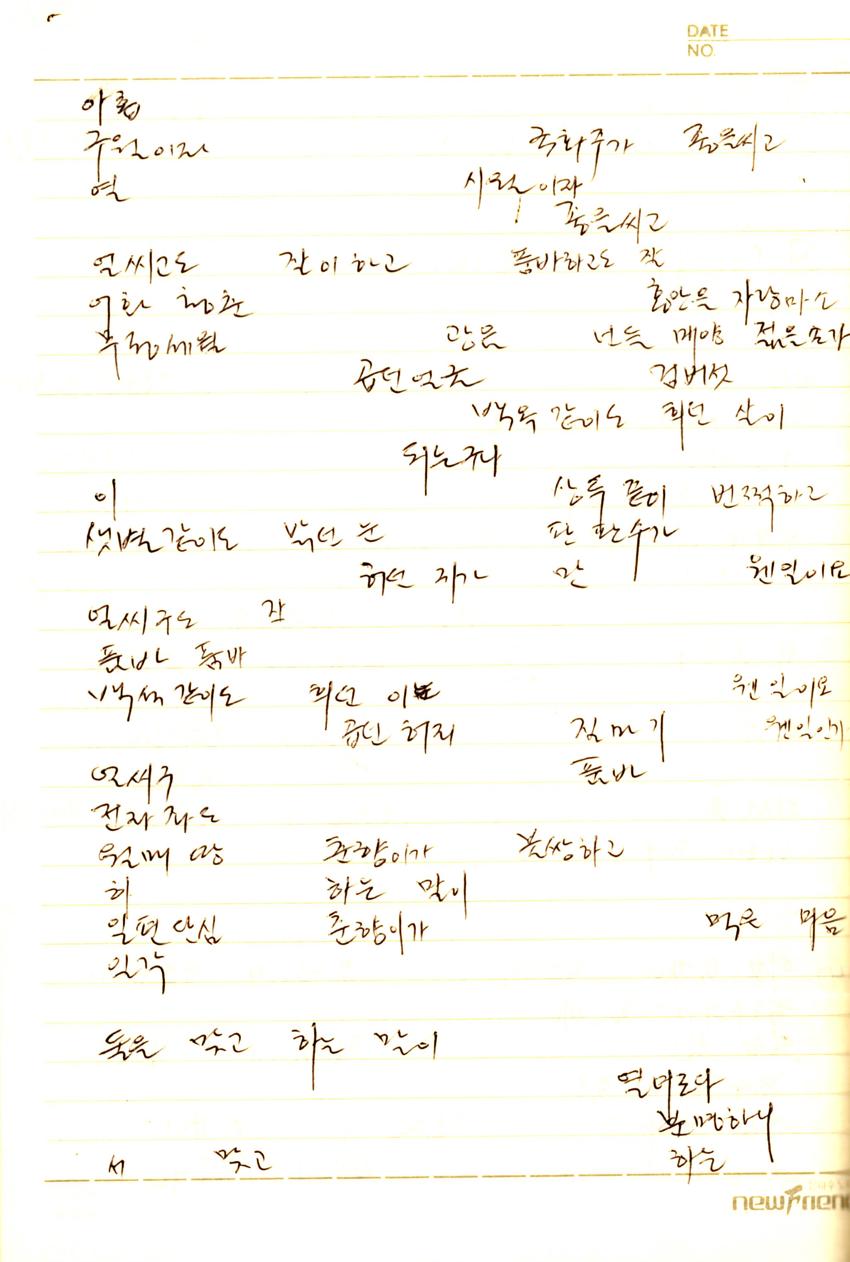 DATE
NO.
아홉
구월이라 국화주가 좋을씨고
열 시월이자
좋을씨고
얼씨고도 잘이하고 품바하고도 잘
어화 청춘 홍안을 자랑마소
무정세월 광음 너는 매양 젊을손가
곱던얼굴 검버섯
백옥같이도 희던 살이
되는구나
이 상투 끝이 번쩍하고
샛별같이도 밝던 눈 판 판수가
허던 지가 만 웬일이요
얼씨구도 잘
품바 품바
백석같이도 희던 이빨 웬일이요
곱던 허리 질마기 웬일인가
얼씨구 품바
전라좌도
월매 땅 춘향이가 불쌍하고
하 하는 말이
일편단심 춘향이가 먹은 마음
일각
둘을 맞고 하는 말이
열녀로다
분명하니
서 맞고 하는
newFrien